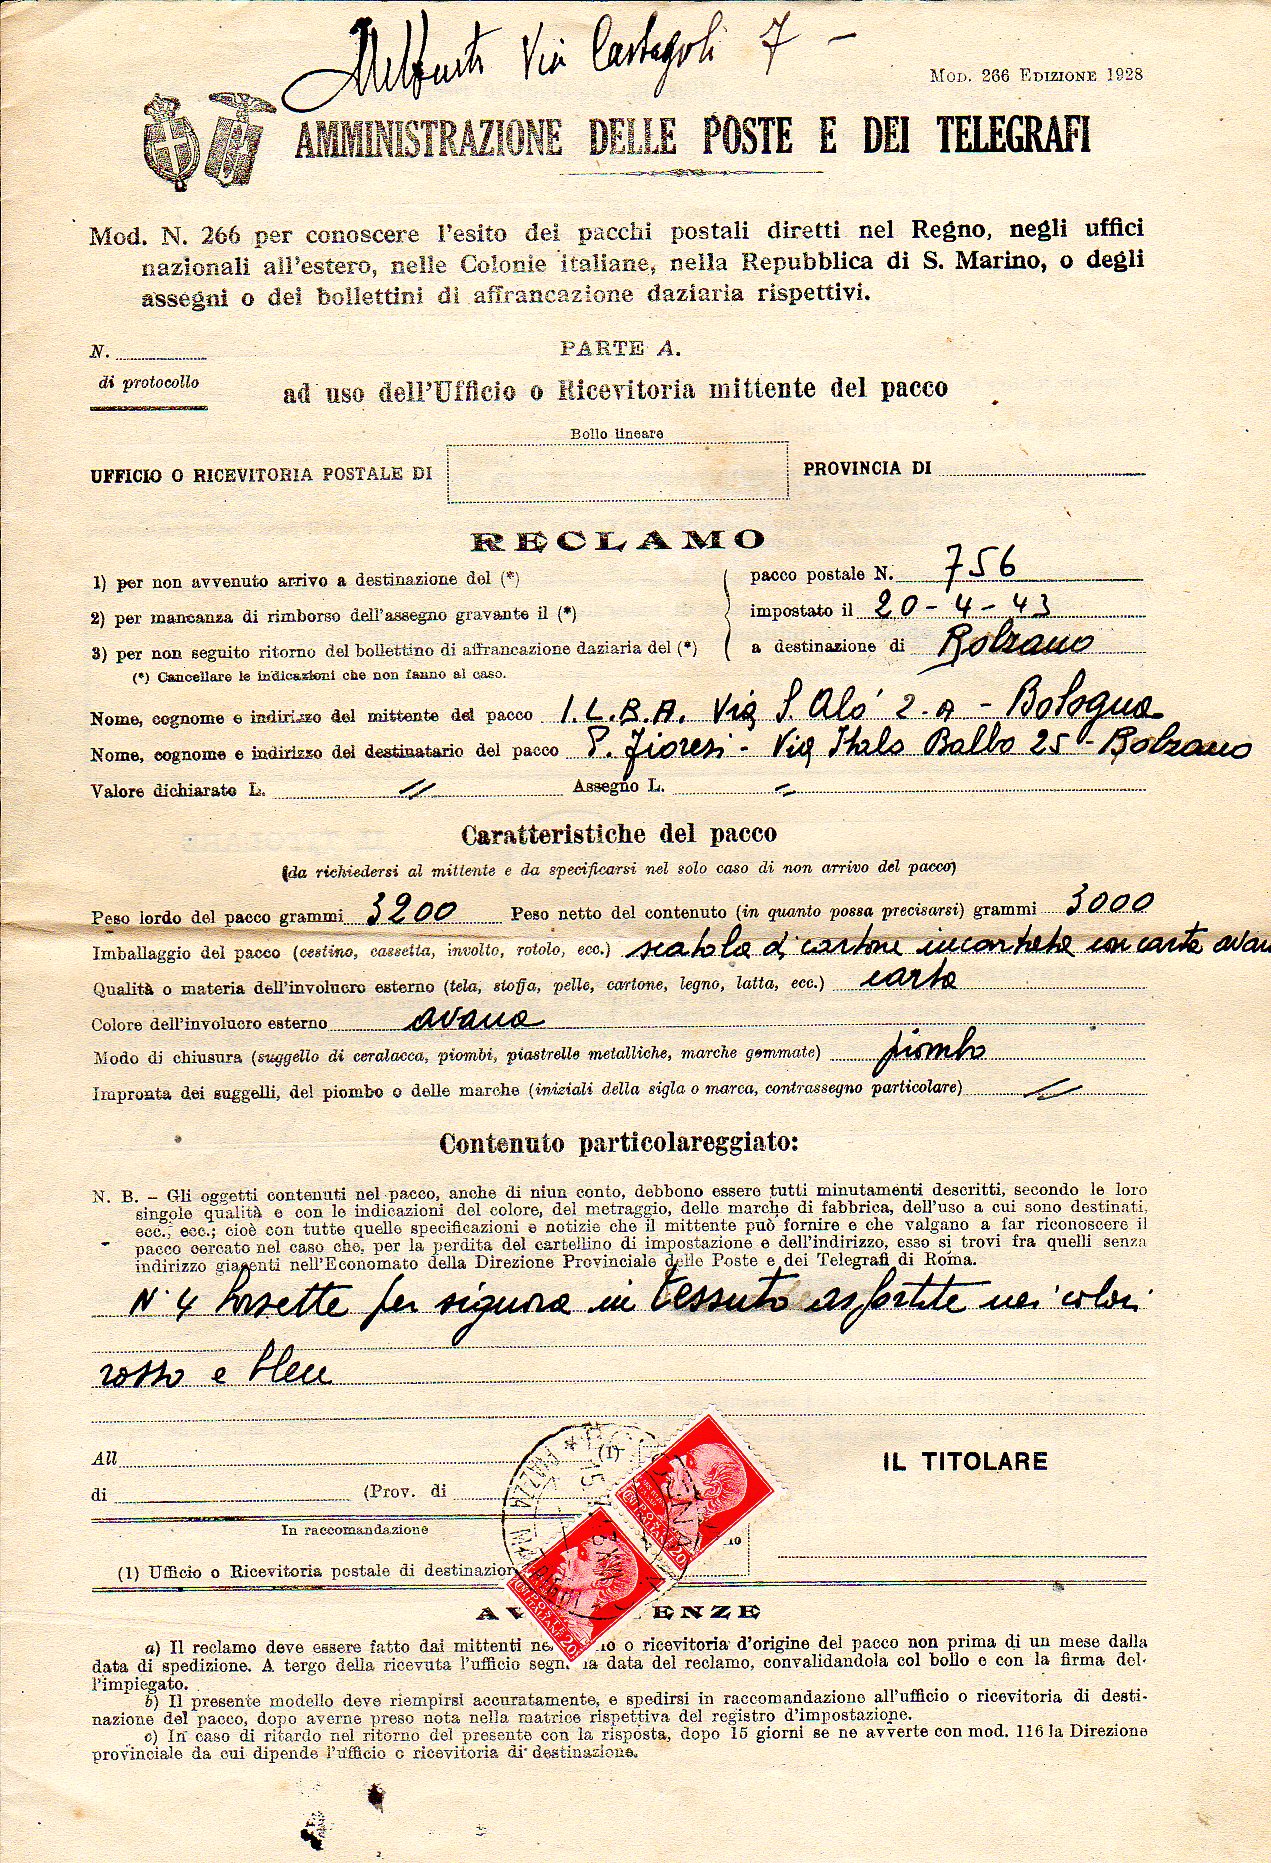 Via Castagoli 7 -
MOD. 266 EDIZIONE 1928
AMMINISTRAZIONE DELLE POSTE E DEI TELEGRAFI
Mod. N. 266 per conoscere l'esito dei pacchi postali diretti nel Regno, negli uffici
nazionali all'estero, nelle Colonie italiane, nella Repubblica di S. Marino, o degli
assegni o dei bollettini di affrancazione daziaria rispettivi.
N.
di protocollo
PARTE A.
ad uso dell'Ufficio o Ricevitoria mittente del pacco
Bollo lineare
UFFICIO O RICEVITORIA POSTALE DI
PROVINCIA DI
RECLAMO
1) per non avvenuto arrivo a destinazione del (*)
2) per mancanza di rimborso dell'assegno gravante il (*)
3) per non seguito ritorno del bollettino di affrancazione daziaria del (*)
(*) Cancellare le indicazioni che non fanno al caso.
pacco postale N. 756
impostato il 20-4-43
a destinazione di Bolzano
Nome, cognome e indirizzo del mittente del pacco I.L.B.A. Via S. Alò 2-A - Bologna
Nome, cognome e indirizzo del destinatario del pacco P. Fioresi - Via Italo Balbo 25 - Bolzano
Valore dichiarato L. // Assegno L. =
Caratteristiche del pacco
(da richiedersi al mittente e da specificarsi nel solo caso di non arrivo del pacco)
Peso lordo del pacco grammi 3200 Peso netto del contenuto (in quanto possa precisarsi) grammi 3000
Imballaggio del pacco (cestino, cassetta, involto, rotolo, ecc.) scatola di cartone incartata con carta avan
Qualità o materia dell'involucro esterno (tela, stoffa, pelle, cartone, legno, latta, ecc.) carta
Colore dell'involucro esterno avana
Modo di chiusura (suggello di ceralacca, piombi, piastrelle metalliche, marche gommate) piombo
Impronta dei suggelli, del piombo o delle marche (iniziali della sigla o marca, contrassegno particolare) //
Contenuto particolareggiato:
N. B. - Gli oggetti contenuti nel pacco, anche di niun conto, debbono essere tutti minutamenti descritti, secondo le loro
singole qualità e con le indicazioni del colore, del metraggio, delle marche di fabbrica, dell'uso a cui sono destinati,
ecc., ecc.; cioè con tutte quelle specificazioni e notizie che il mittente può fornire e che valgano a far riconoscere il
pacco cercato nel caso che, per la perdita del cartellino di impostazione e dell'indirizzo, esso si trovi fra quelli senza
indirizzo giacenti nell'Economato della Direzione Provinciale delle Poste e dei Telegrafi di Roma.
N. 4 borsette per signora in tessuto assortite nei colori
rosso e bleu
All (1)
di (Prov. di
IL TITOLARE
In raccomandazione
(1) Ufficio o Ricevitoria postale di destinazion
AV ENZE
a) Il reclamo deve essere fatto dai mittenti ne io o ricevitoria d'origine del pacco non prima di un mese dalla
data di spedizione. A tergo della ricevuta l'ufficio segn. la data del reclamo, convalidandola col bollo e con la firma del-
l'impiegato.
b) Il presente modello deve riempirsi accuratamente, e spedirsi in raccomandazione all'ufficio o ricevitoria di desti-
nazione del pacco, dopo averne preso nota nella matrice rispettiva del registro d'impostazione.
c) In caso di ritardo nel ritorno del presente con la risposta, dopo 15 giorni se ne avverte con mod. 116 la Direzione
provinciale da cui dipende l'ufficio o ricevitoria di destinazione.